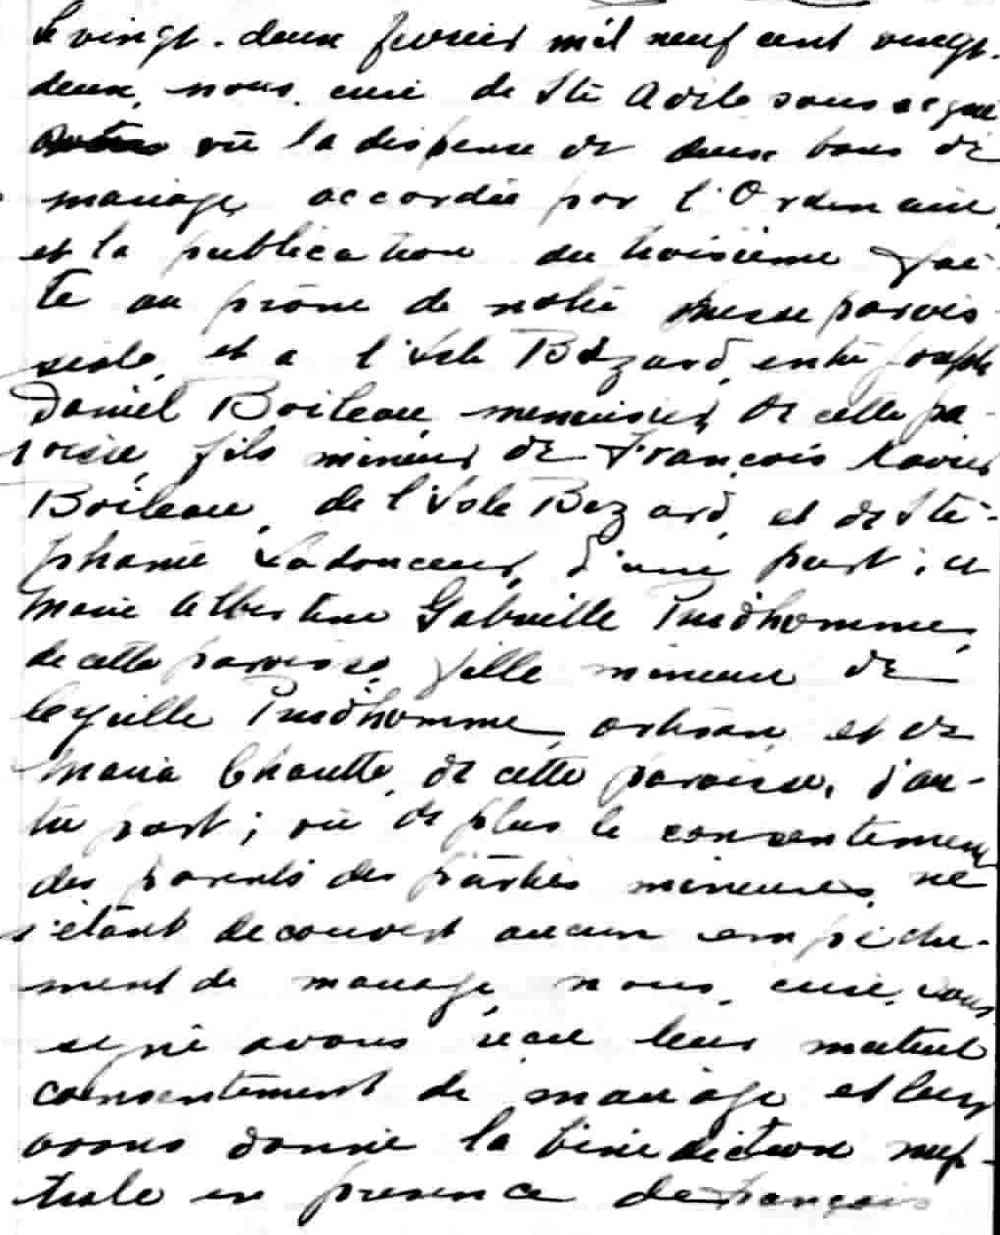 Le vingt-deux fevrier mil neuf cent vingt-
deux, nous, curé de Ste Adèle soussigné
vû la dispense de deux bans de
mariage accordée par l'Ordinaire,
et la publication du troisième fai-
te au prône de notre messe parois-
siale, et à l'Isle Bizard, entre Joseph
Daniel Boileau, menuisier, de cette pa-
roisse, fils mineur de François Xavier
Boileau, de l'Isle Bizard, et de Sté-
phanie Ladouceur, d'une part; et
Marie Albertine Gabrielle Prudhomme,
de cette paroisse, fille mineure de
Prudhomme, artisan, et de
Maria Charette, de cette paroisse, d'au-
tre part; vu de plus le consentement
des parents des parties mineures, ne
s'étant découvert aucun empêche-
ment de mariage, nous, curé, sous
signé avons reçu leur mutuel
consentement de mariage et leur
avons donné la bénédiction nup-
tiale en présence de François